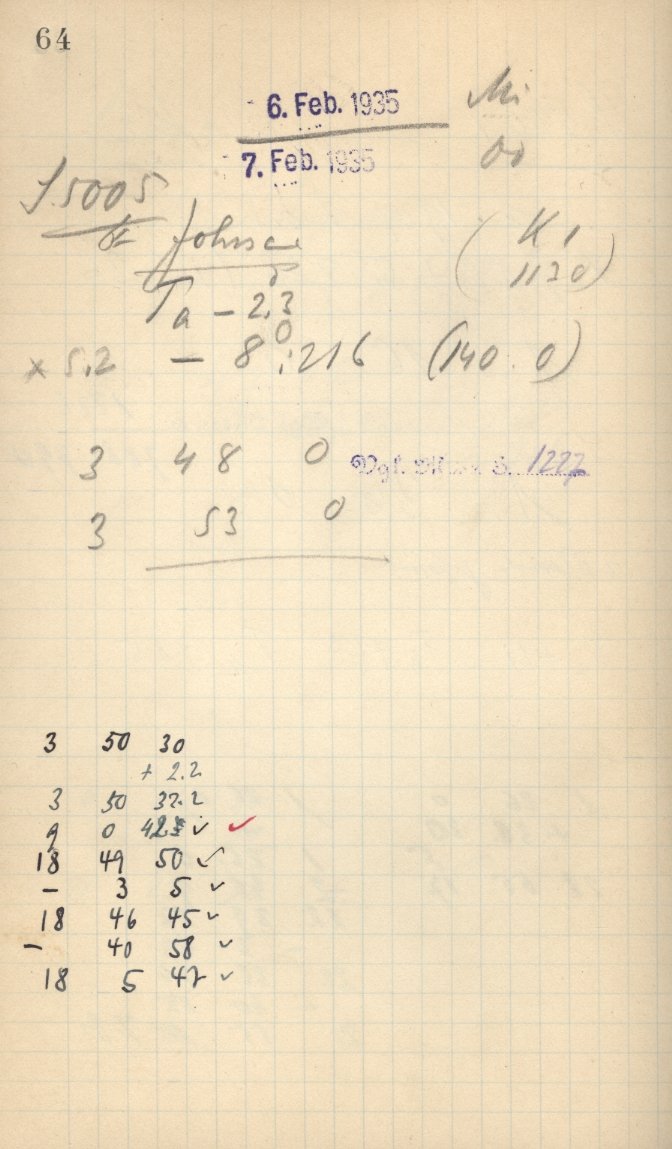 64
6. Feb. 1935 Mi
7. Feb. 1935 Do
J 5005
(K 1
1120)
Ta - 2.3
x 5.2 - 8°:216 (140.0)
3 48 0 Vgl. S. 1227
3 53 0
3 50 30
+ 2.2
3 50 32.2
9 0 42.5 ✓ ✓
18 49 50 ✓
- 3 5 ✓
18 46 45 ✓
- 40 58 ✓
18 5 47 ✓